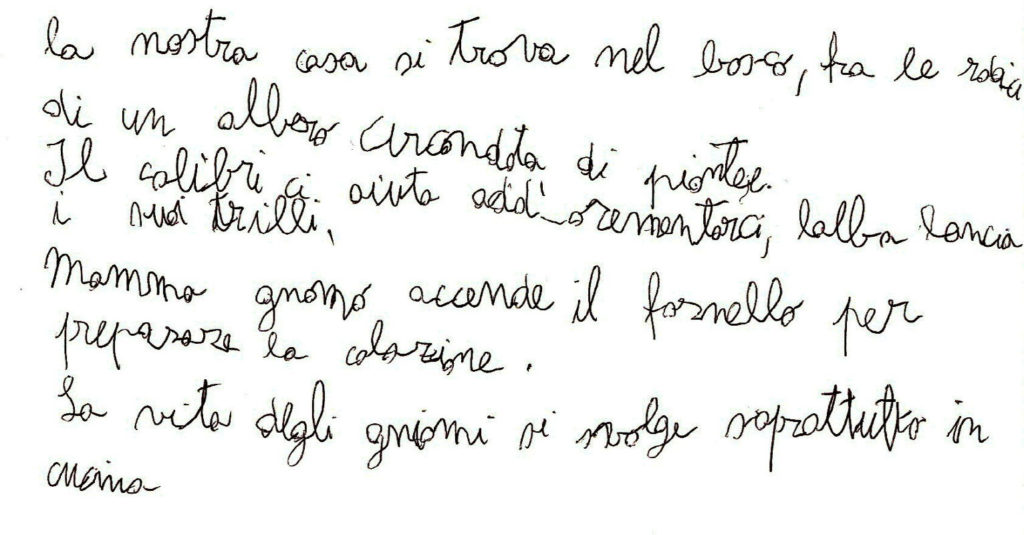 la nostra casa si trova nel bosco, fra le radici
di un albero circondata di piante.
Il colibri ci aiuta add
i suoi trilli, lalba lancia
Mamma gnomo accende il fornello per
preparare la colazione.
La vita degli gniomi si svolge soprattutto in
cucina